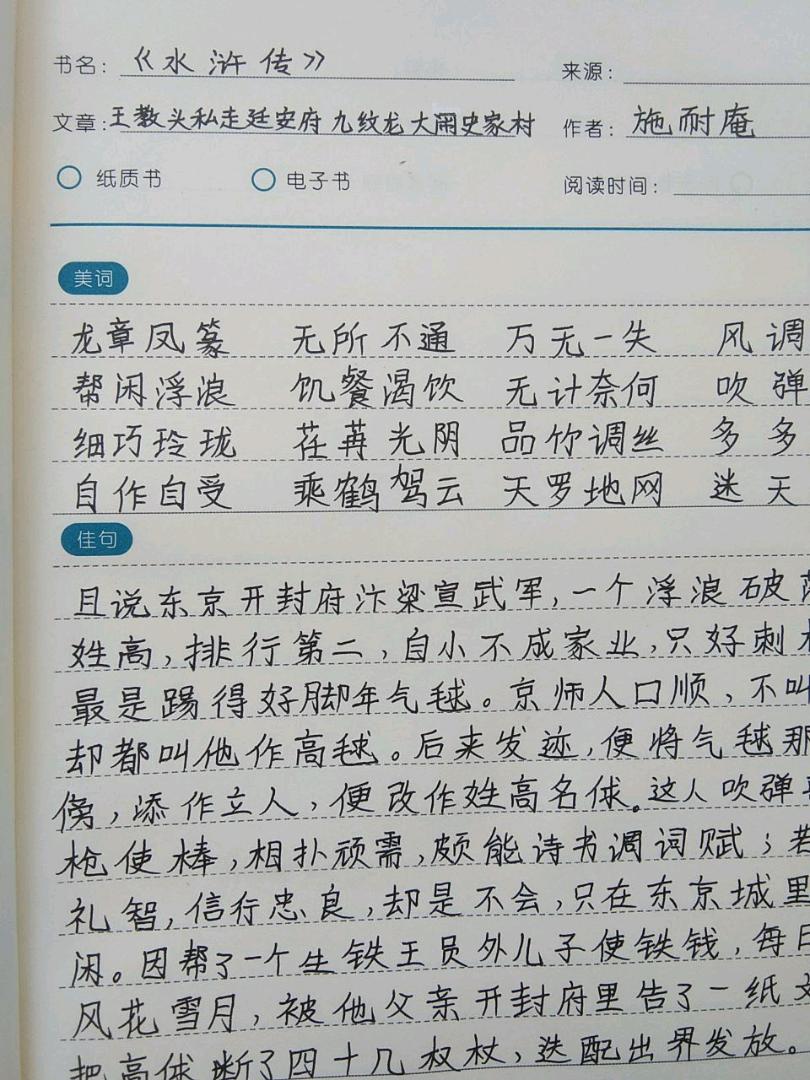 书名：《水浒传》 来源：
文章：王教头私走延安府 九纹龙大闹史家村 作者：施耐庵
纸质书 电子书 阅读时间：
美词
龙章凤篆 无所不通 万无一失 风调
帮闲浮浪 饥餐渴饮 无计奈何 吹弹
细巧玲珑 荏苒光阴 品竹调丝 多多
自作自受 乘鹤驾云 天罗地网 迷天
佳句
且说东京开封府汴梁宣武军，一个浮浪破落
姓高，排行第二，自小不成家业，只好刺枪
最是踢得好脚年气毬。京师人口顺，不叫
却都叫他作高毬。后来发迹，便将气毬那
傍，添作立人，便改作姓高名俅。这人吹弹
枪使棒，相扑顽需，颇能诗书调词赋；若
礼智，信行忠良，却是不会，只在东京城里
闲。因帮了一个生铁王员外儿子使铁钱，每日
风花雪月，被他父亲开封府里告了一纸文
把高俅断了四十几杖杖，迭配出界发放。